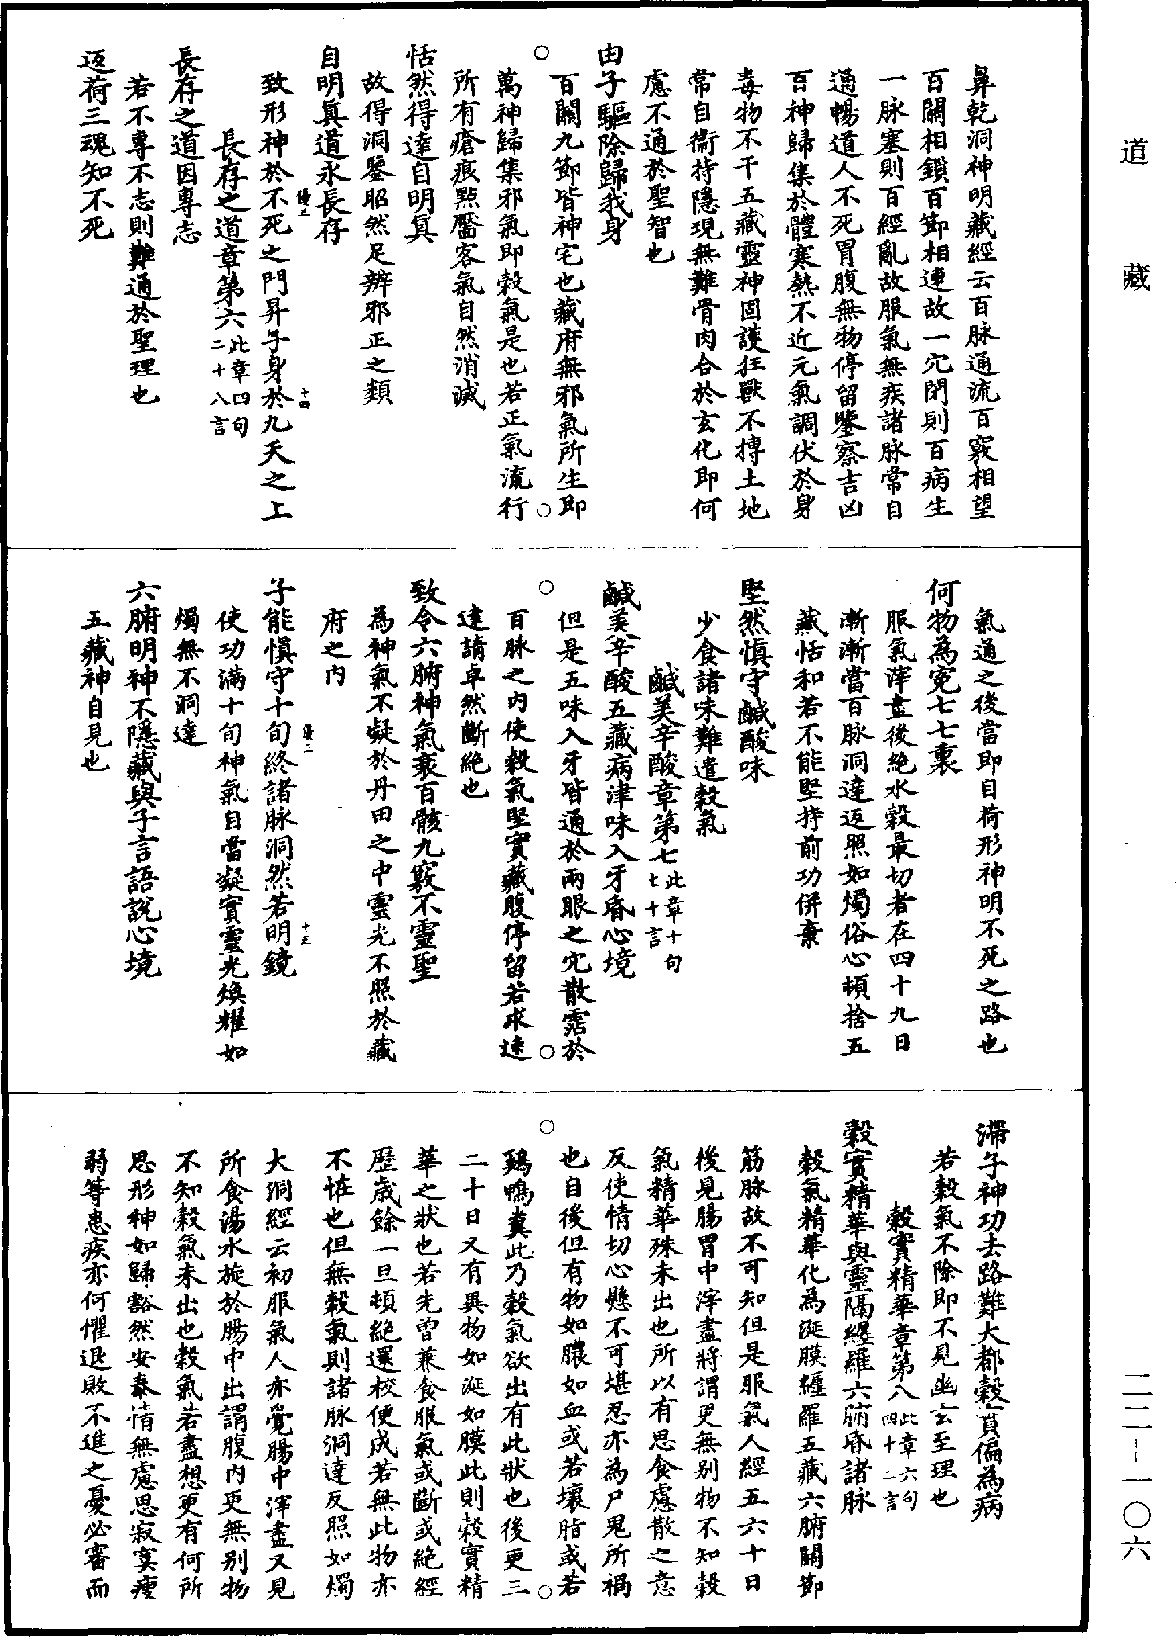 道藏
鼻乾洞神明藏經云百脉通流百竅相望
百關相鎖百節相連故一穴閉則百病生
一脉塞則百經亂故服氣無疾諸脉常自
通暢道人不死胃腹無物停留鑒察吉凶
百神歸集於體寒熱不近元氣調伏於身
毒物不干五藏靈神固護狂獸不搏土地
常自衛持隱現無難骨肉合於玄化即何
慮不通於聖智也
由子驅除歸我身
百關九節皆神宅也藏府無邪氣所生即
萬神歸集邪氣即穀氣是也若正氣流行
所有瘡痕點黶客氣自然消滅
恬然得達自明真
故得洞鑒昭然足辨邪正之類
自明真道永長存
致形神於不死之門昇子身於九天之上
長存之道章第六此章四句二十八言
長存之道因專志
若不專不志則難通於聖理也
返荷三魂知不死
氣通之後當即自荷形神明不死之路也
何物為冤七七裏
服氣滓盡後絶水穀最切者在四十九日
漸漸當百脉洞達返照如燭俗心頓捨五
藏恬和若不能堅持前功併棄
堅然慎守鹹酸味
少食諸味難遣穀氣
鹹美辛酸章第七此章十句七十言
鹹美辛酸五藏病津味入牙昏心境
但是五味入牙皆通於兩眼之穴散霑於
百脉之内使穀氣堅實藏腹停留若求速
達請卓然斷絶也
致令六腑神氣衰百骸九竅不靈聖
為神氣不凝於丹田之中靈光不照於藏
府之内
子能慎守十旬終諸脉洞然若明鏡
使功滿十旬神氣自當凝實靈光煥耀如
燭無不洞達
六腑明神不隱藏與子言語說心境
五藏神自見也
滯子神功去路難大都穀實偏為病
若穀氣不除即不見幽玄至理也
穀實精華章第八此章六句四十二言
穀實精華與靈隔纏羅六腑昏諸脉
穀氣精華化為涎膜纏羅五藏六腑關節
筋脉故不可知但是服氣人經五六十日
後見腸胃中滓盡將謂更無别物不知穀
氣精華殊未出也所以有思食慮散之意
反使情切心懸不可堪忍亦為尸鬼所禍
也自後但有物如膿如血或若壞脂或若
鷄鴨糞此乃穀氣欲出有此狀也後更三
二十日又有異物如涎如膜此則穀實精
華之狀也若先曾兼食服氣或斷或絶經
歷歲餘一旦頓絶還校便成若無此物亦
不恠也但無穀氣則諸脉洞達反照如燭
大洞經云初服氣人亦覺腸中滓盡又見
所食湯水旋於腸中出謂腹内更無别物
不知穀氣未出也穀氣若盡想更有何所
思形神如歸豁然安泰情無慮思寂寞瘦
弱等患疾亦何懼退敗不進之憂必審而
十四
十五
二二-一〇六